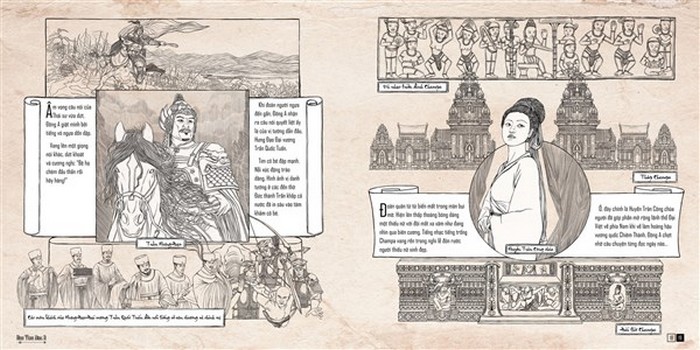 Âm vang câu nói của
Thái sư vừa dứt,
Đông A giật mình bởi
tiếng vó ngựa dồn dập.
Vang lên một giọng
nói khác, dứt khoát
và cương nghị: "Bệ hạ
chém đầu thần rồi
hãy hàng!"
Khi đoàn người ngựa
đến gần, Đông A nhận
ra câu nói quyết liệt ấy
là của vị tướng dẫn đầu,
Hưng Đạo Đại Vương
Trần Quốc Tuấn.
Tim cô bé đập mạnh.
Nỗi xúc động trào
dâng. Hình ảnh vị danh
tướng ở các đền thờ
Đức thánh Trần khắp cả
nước đã in sâu vào tâm
khảm cô bé.
Trần Hưng Đạo
Vũ nhạc trên đỉnh Champa
Tháp Champa
Đoàn quân từ từ biến mất trong màn bụi
mờ. Hiện lên thấp thoáng bóng dáng
một thiếu nữ với đôi mắt xa xăm như đang
nhìn qua biên cương. Tiếng nhạc tiếng trống
Champa vang rền trong nghi lễ đón rước
người thiếu nữ xinh đẹp.
Huyền Trân Công chúa
Ồ đây chính là Huyền Trân Công chúa
người đã góp phần mở rộng lãnh thổ Đại
Việt về phía Nam khi về làm hoàng hậu
vương quốc Chiêm Thành. Đông A chợt
nhớ câu chuyện từng đọc ngày nào...